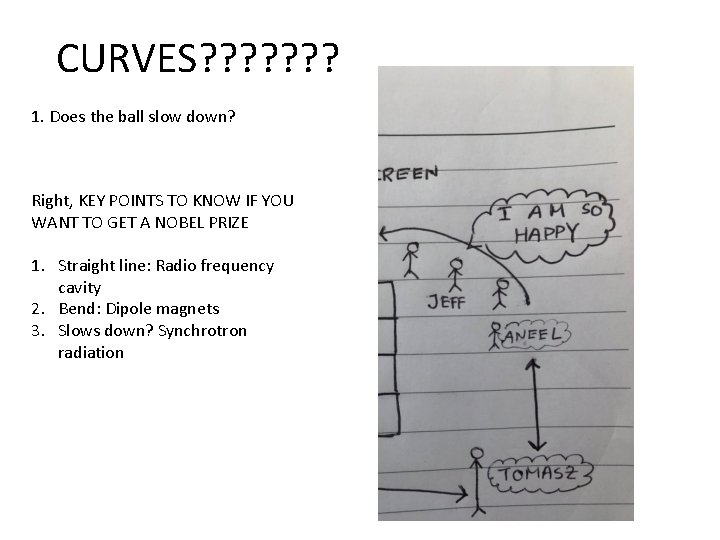 CURVES???????
1. Does the ball slow down?
Right, KEY POINTS TO KNOW IF YOU
WANT TO GET A NOBEL PRIZE
1. Straight line: Radio frequency
cavity
2. Bend: Dipole magnets
3. Slows down? Synchrotron
radiation
CREEN
I AM SO
HAPPY
JEFF
ANEEL
TOMASZ